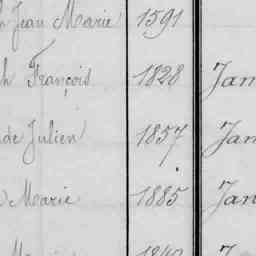 Jean Marie 1591
h François 1828 Jan
de Julien 1857 Jan
Marie 1885 Jan
1840